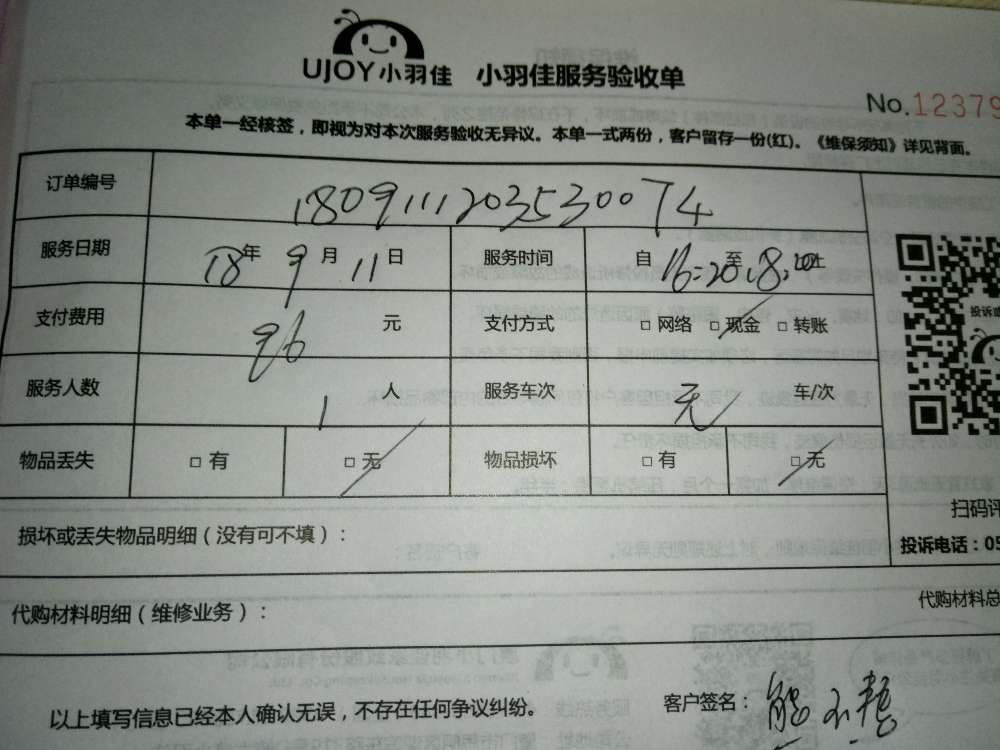 UJOY小羽佳 小羽佳服务验收单
No.12379
本单一经核签，即视为对本次服务验收无异议。本单一式两份，客户留存一份(红)。《维保须知》详见背面。
订单编号 1809111203530074
服务日期 18年 9月 11日 服务时间 自 16:20至18:
支付费用 96 元 支付方式 □ 网络 □ 现金 □ 转账
投诉
服务人数 1 人 服务车次 无 车/次
物品丢失 □ 有 □ 无 物品损坏 □ 有 □ 无
扫码评
损坏或丢失物品明细（没有可不填）：
投诉电话：05
代购材料明细（维修业务）：
代购材料总
以上填写信息已经本人确认无误，不存在任何争议纠纷。 客户签名：熊